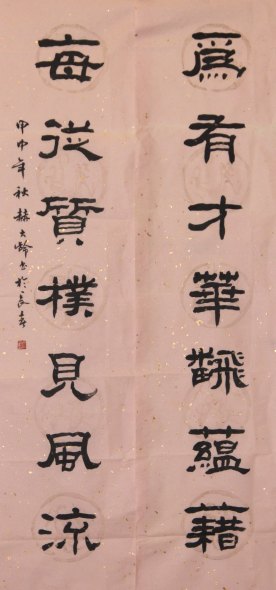 爲有才華飜蘊藉
每從質樸見風流
甲申年秋赫大龄书於长春